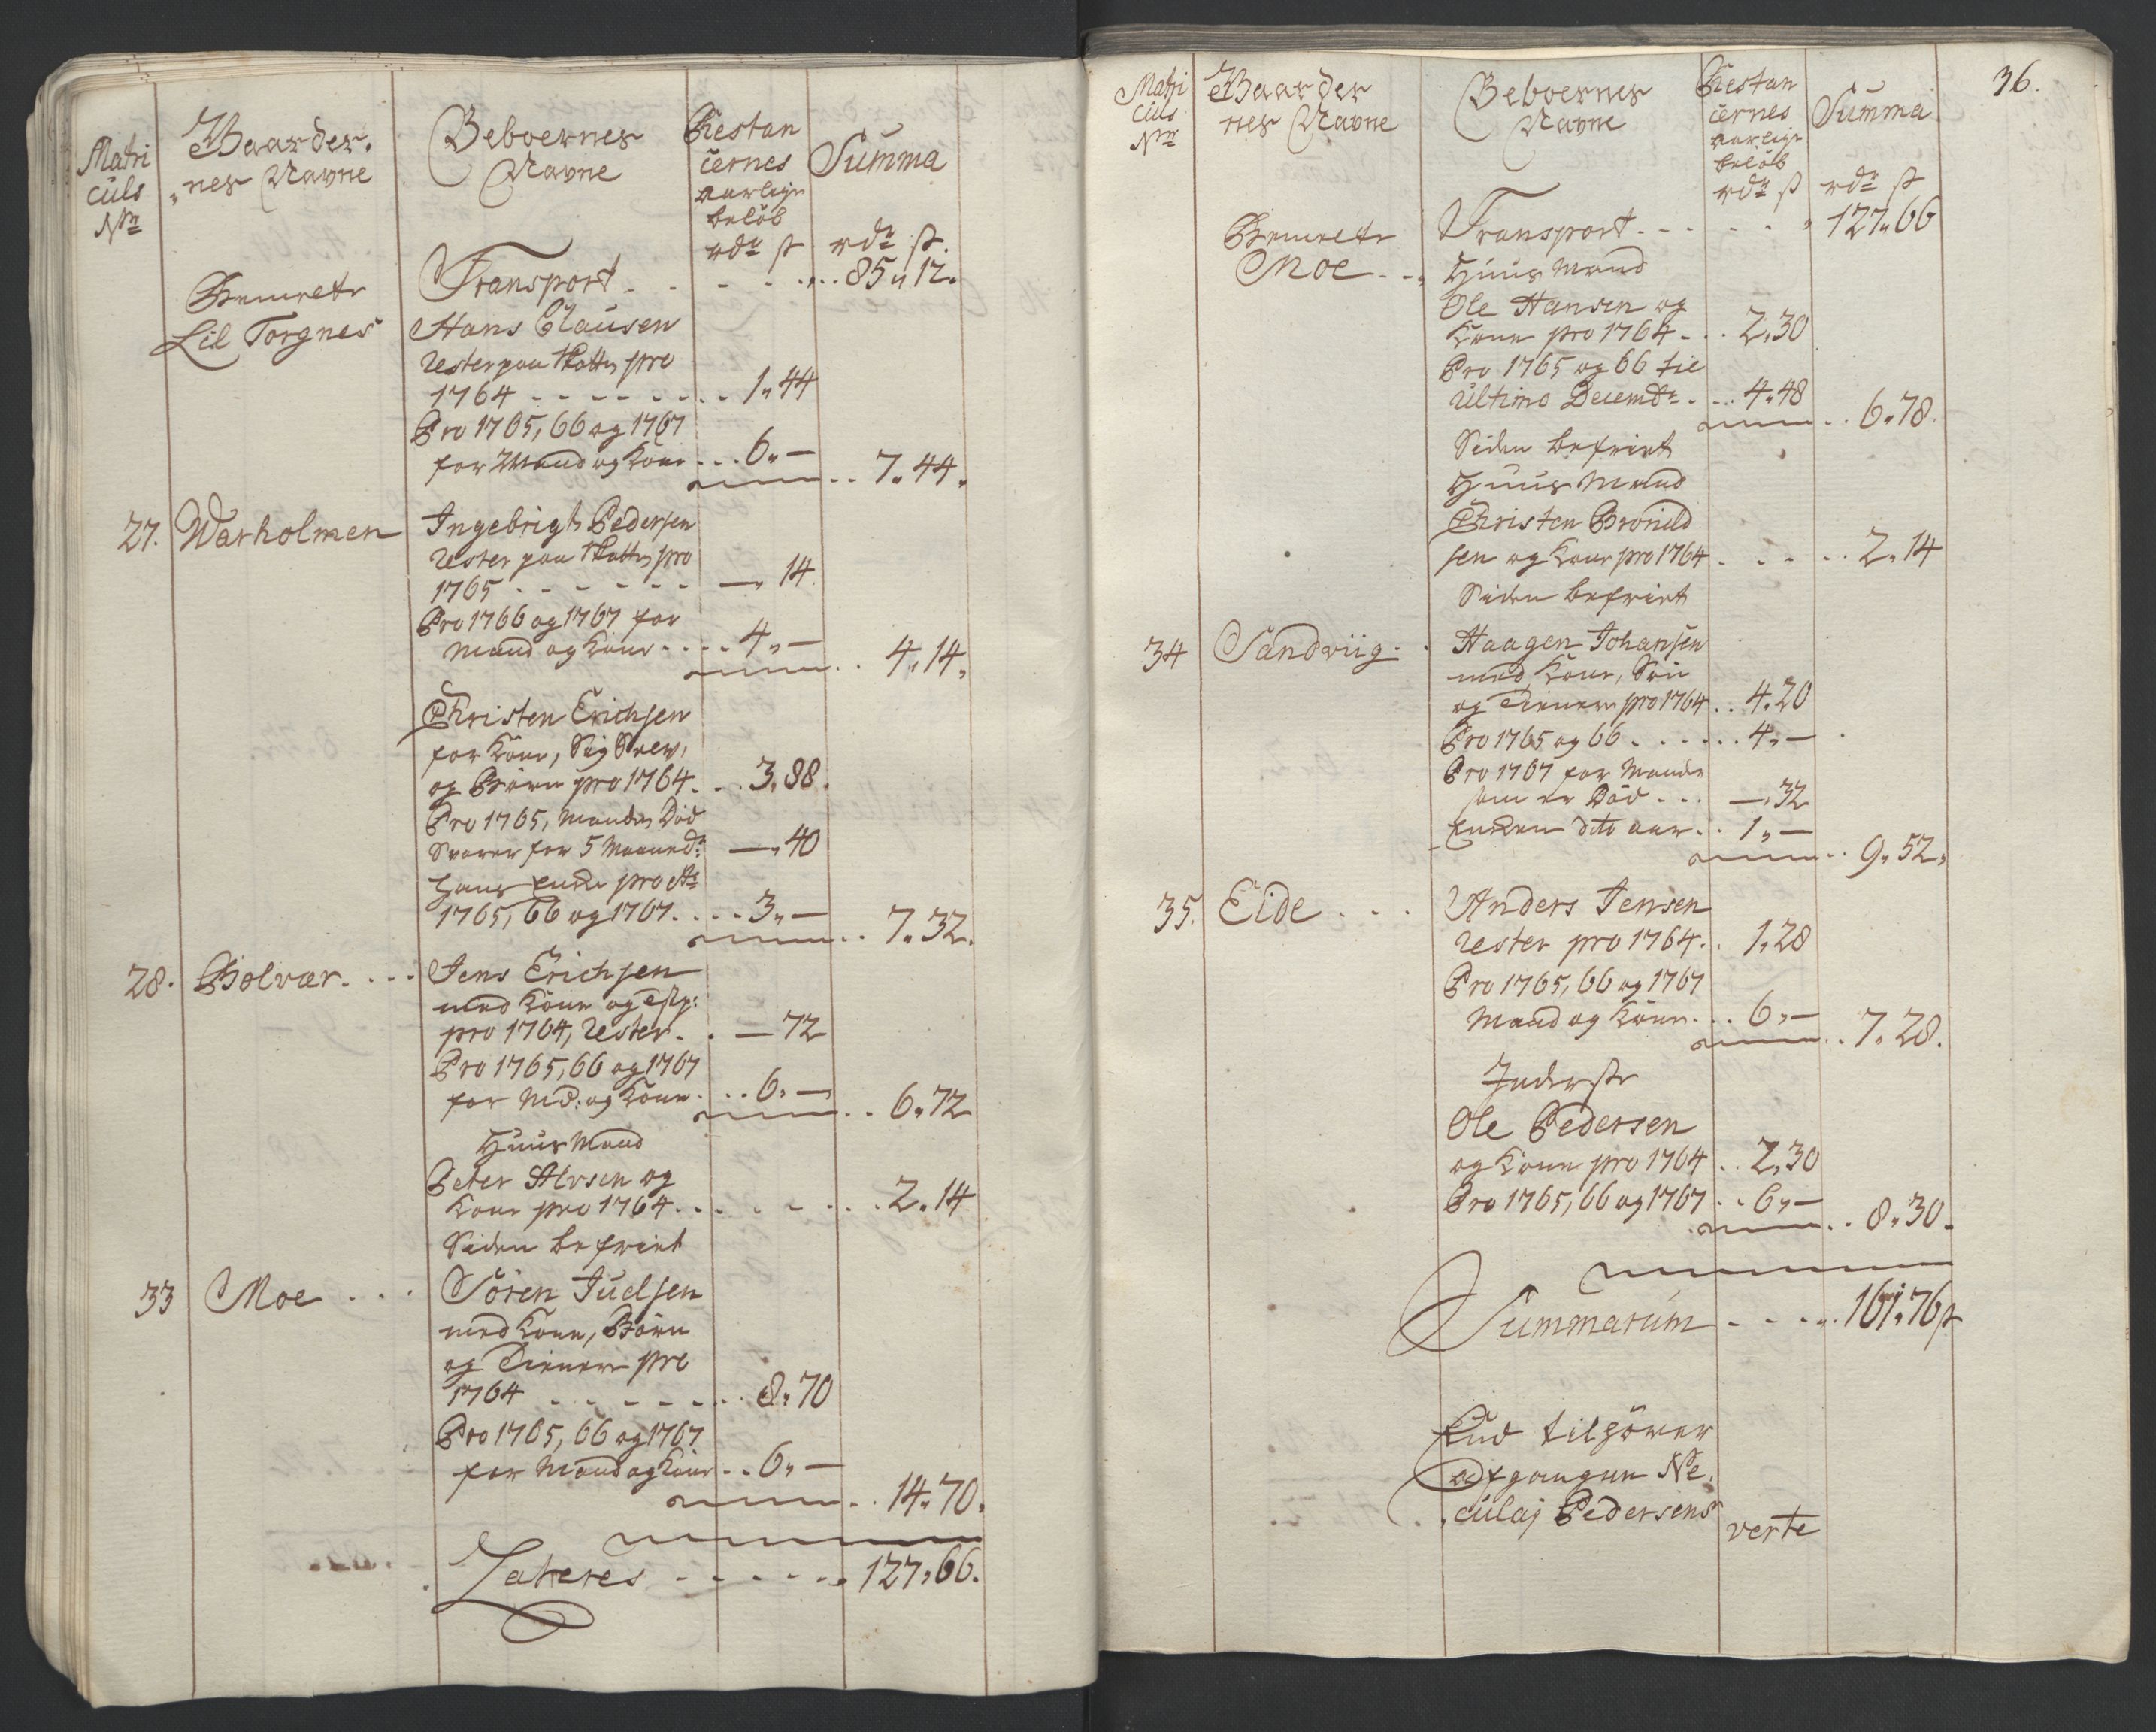 Matri
culs
Nr
Gaarder-
nes Navne
Beboernes
Navne
Restan
cernes
aarlige
beløb
rdr ß
Summa
rdr ß.
Bemeete
Lil Torgnes
Transport . . . . . . 85 „ 12.
Hans Clausen
Rester paa Skatten pro
1764 . . . . . . . 1 „ 44
Pro 1765, 66 og 1767
for Mand og Kone . . . 6 „ — . . 7 „ 44.
27. Warholmen Ingebrigt Pedersen
Rester paa Skatten pro
1765 . . . . . . — „ 14.
Pro 1766 og 1767 for
Mand og Kone . . . . 4 „ — . . 4 „ 14.
Christen Erichsen
for Kone,
og Børn pro 1764 . . . 3 „ 88.
Pro 1765, Manden Død
Svarer for 5 Maaneder — „ 40
Hans Enke pro Ao
1765, 66 og 1767 . . . . 3 „ — . . 7 „ 32.
28. Bolvær . . . Jens Erichsen
med Kone og
pro 1764, Rester . . — 72
Pro 1765, 66 og 1767
for Md: og Kone . . . 6 „ — . . 6 „ 72
Huusmand
Peter Alvsen og
Kone pro 1764 . . . . . . . 2 „ 14
Siden befriet
33 Moe . . . Sören Juelsen
med Kone, Børn
og Tienere pro
1764 . . . . . . . 8 „ 70
Pro 1765, 66 og 1767
for Mand og Kone . . 6 „ — . . 14 „ 70.
Lateres . . . . . . . 127 „ 66.
36.
Matri
culs
Nr
Gaarder
nes Navne
Beboernes
Navne
Restan
cernes
aarlige
beløb
rdr ß
Summa
rdr ß
Bemeete
Moe . . .
Transport . . . . . . 127 „ 66
Huusmand
Ole Hansen og
Kone pro 1764 . . . 2 „ 30
Pro 1765 og 66 til
Ultimo Decembr . . . 4 „ 48 . . 6 „ 78.
Siden befriet
Huusmand
Christen Bronild
sen og Kone pro 1764 . . . . . 2 „ 14
Siden befriet
34 Sandviig . . Haagen Johansen
med Kone, Søn
og Tienere pro 1764 . . 4 „ 20
Pro 1765 og 66 . . . . . . 4 „ —
Pro 1767 for Manden
som er Død . . . — „ 32
Enken dito aar . . 1 „ — . . 9 „ 52.
35. Eide . . . Anders Jensen
Rester pro 1764 . . 1 „ 28
Pro 1765, 66 og 1767
Mand og Kone . . . 6 „ — . . 7 „ 28.
Inderste
Ole Pedersen
og Kone pro 1764 . . 2 „ 30
Pro 1765, 66 og 1767 . . 6 „ — . . 8 „ 30.
Summarum . . . . . 161 „ 76 ß
End tilhører
afgangne Ne-
culaj Pedersens
verte